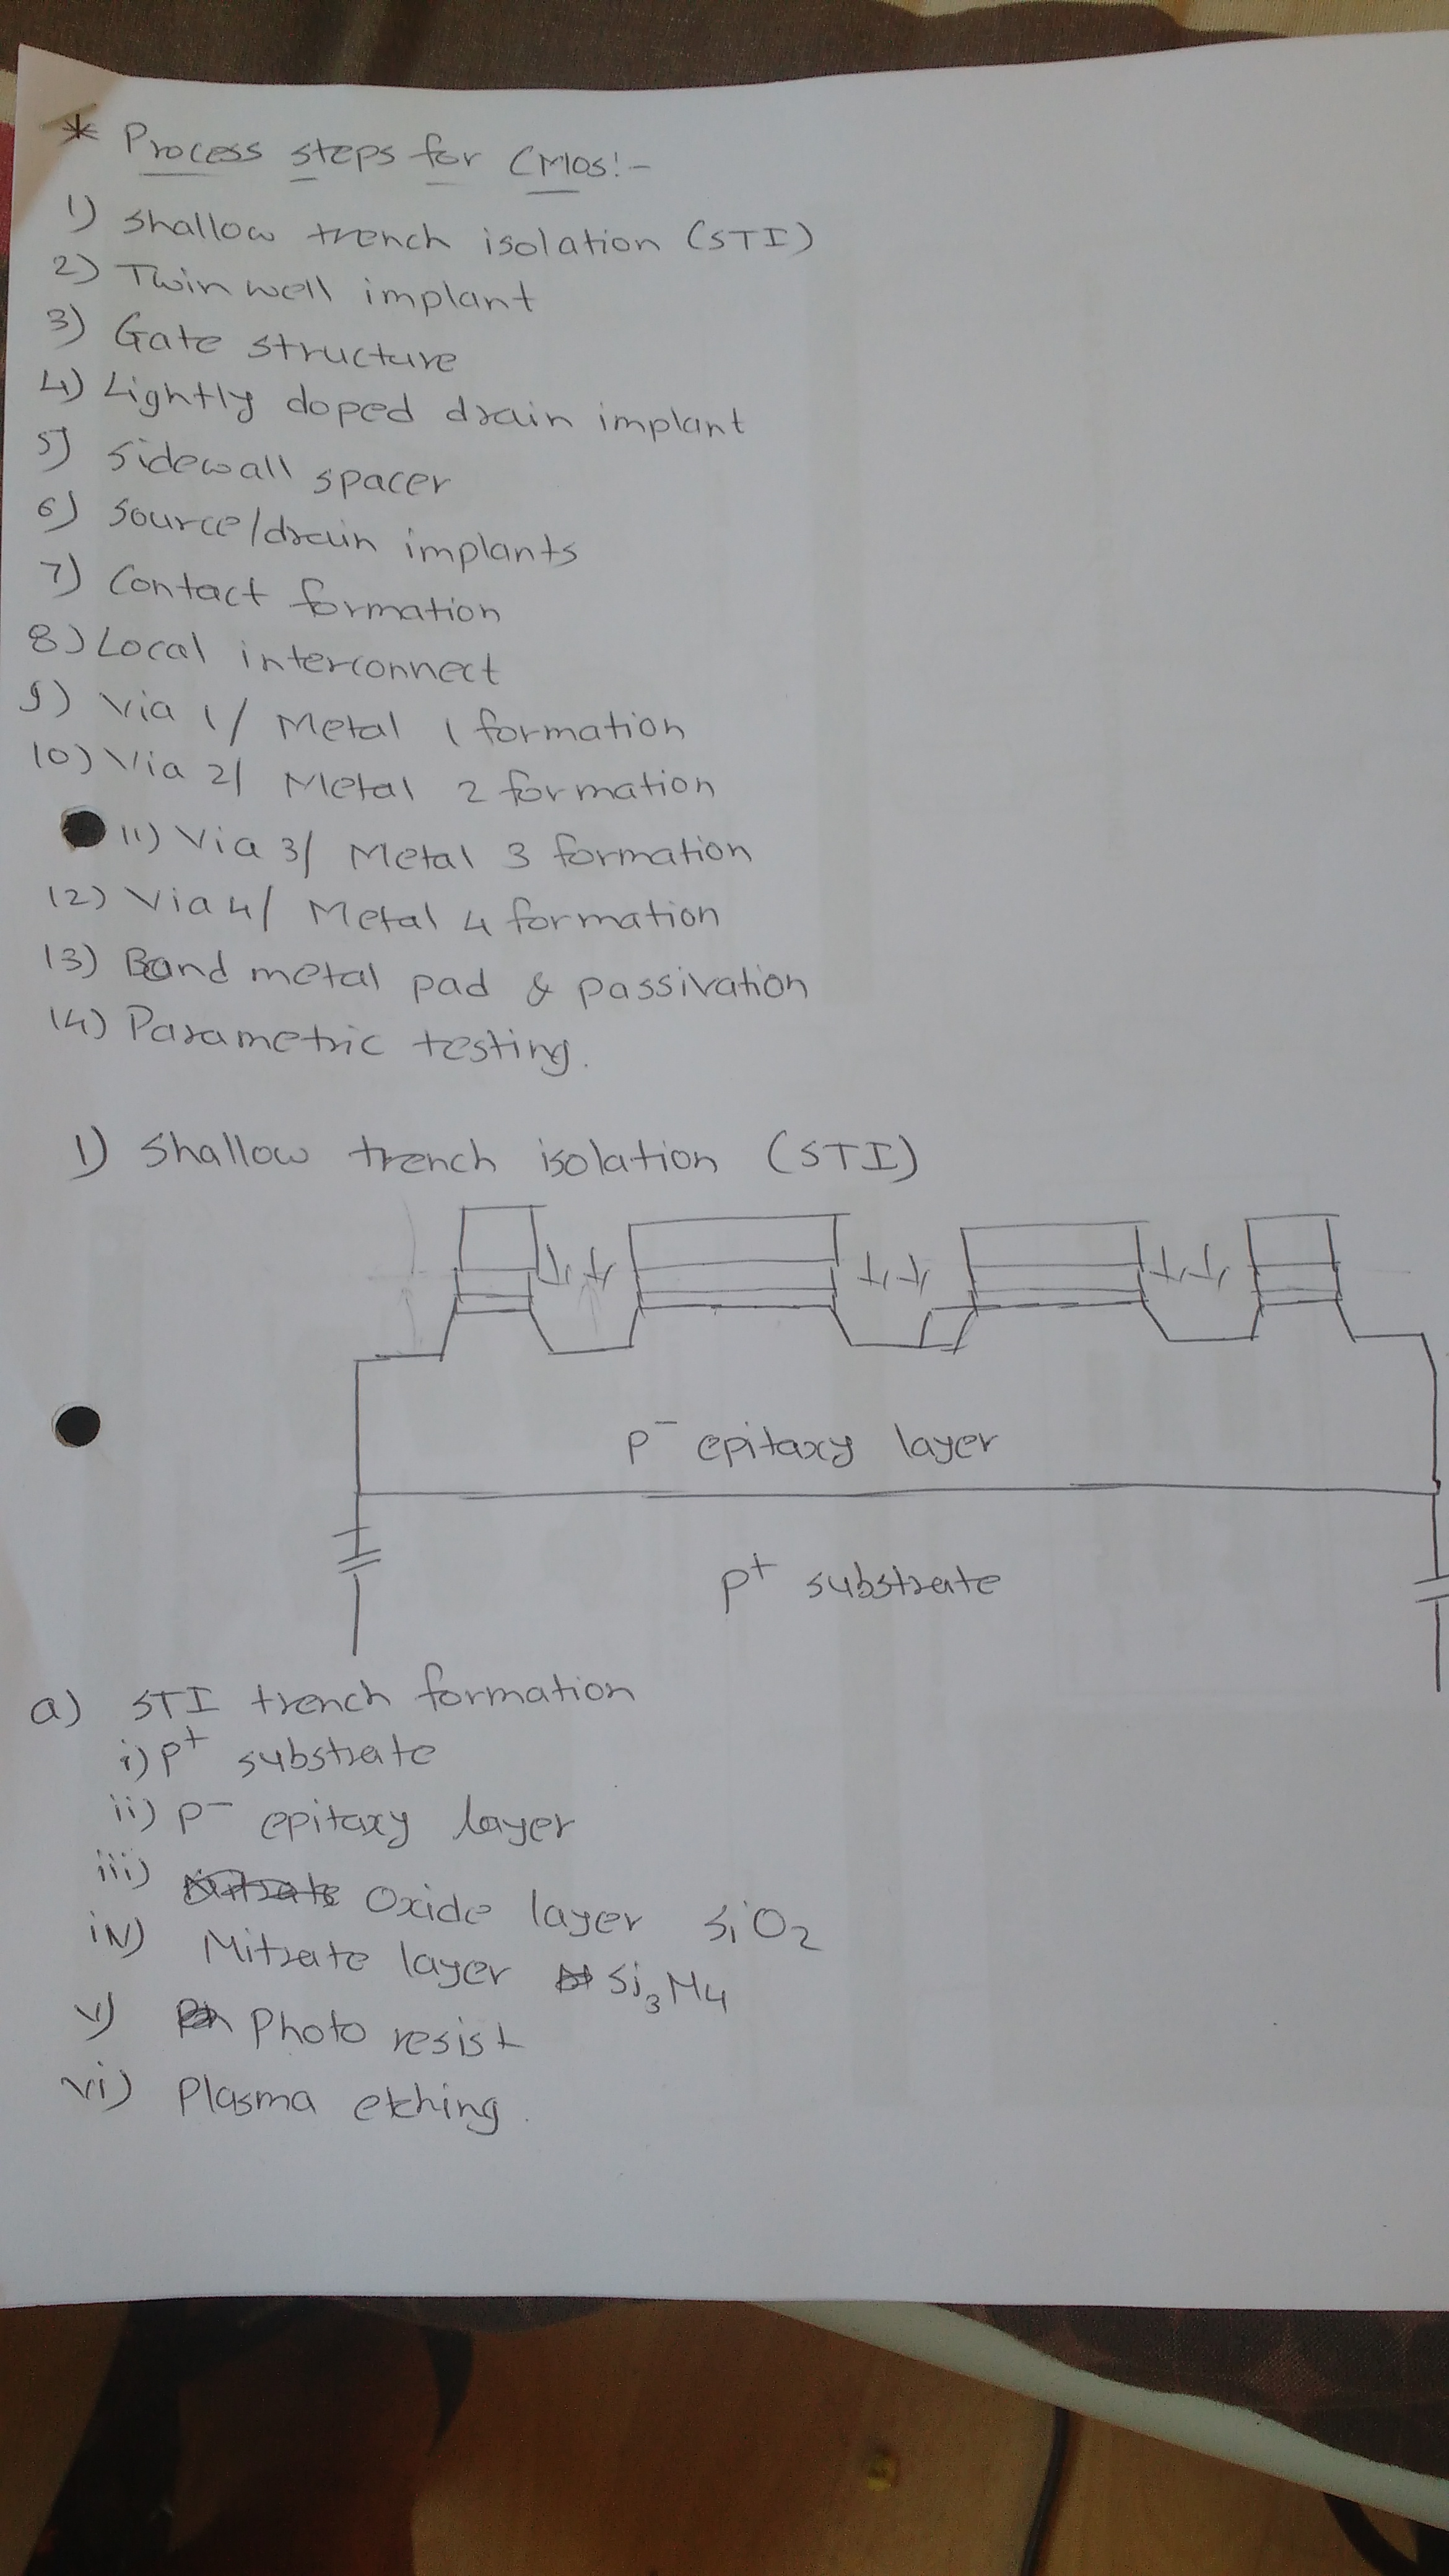 * Process steps for CMOS:-
1) Shallow trench isolation (STI)
2) Twin well implant
3) Gate structure
4) Lightly doped drain implant
5) Sidewall spacer
6) Source/drain implants
7) Contact formation
8) Local interconnect
9) Via 1/ Metal 1 formation
10) Via 2/ Metal 2 formation
11) Via 3/ Metal 3 formation
12) Via 4/ Metal 4 formation
13) Bond metal pad & passivation
14) Parametric testing.
1) Shallow trench isolation (STI)
P⁻ epitaxy layer
P⁺ substrate
a) STI trench formation
i) P⁺ substrate
ii) P⁻ epitaxy layer
iii) Oxide layer SiO₂
iv) Nitrate layer Si₃N₄
v) Photo resist
vi) Plasma etching.